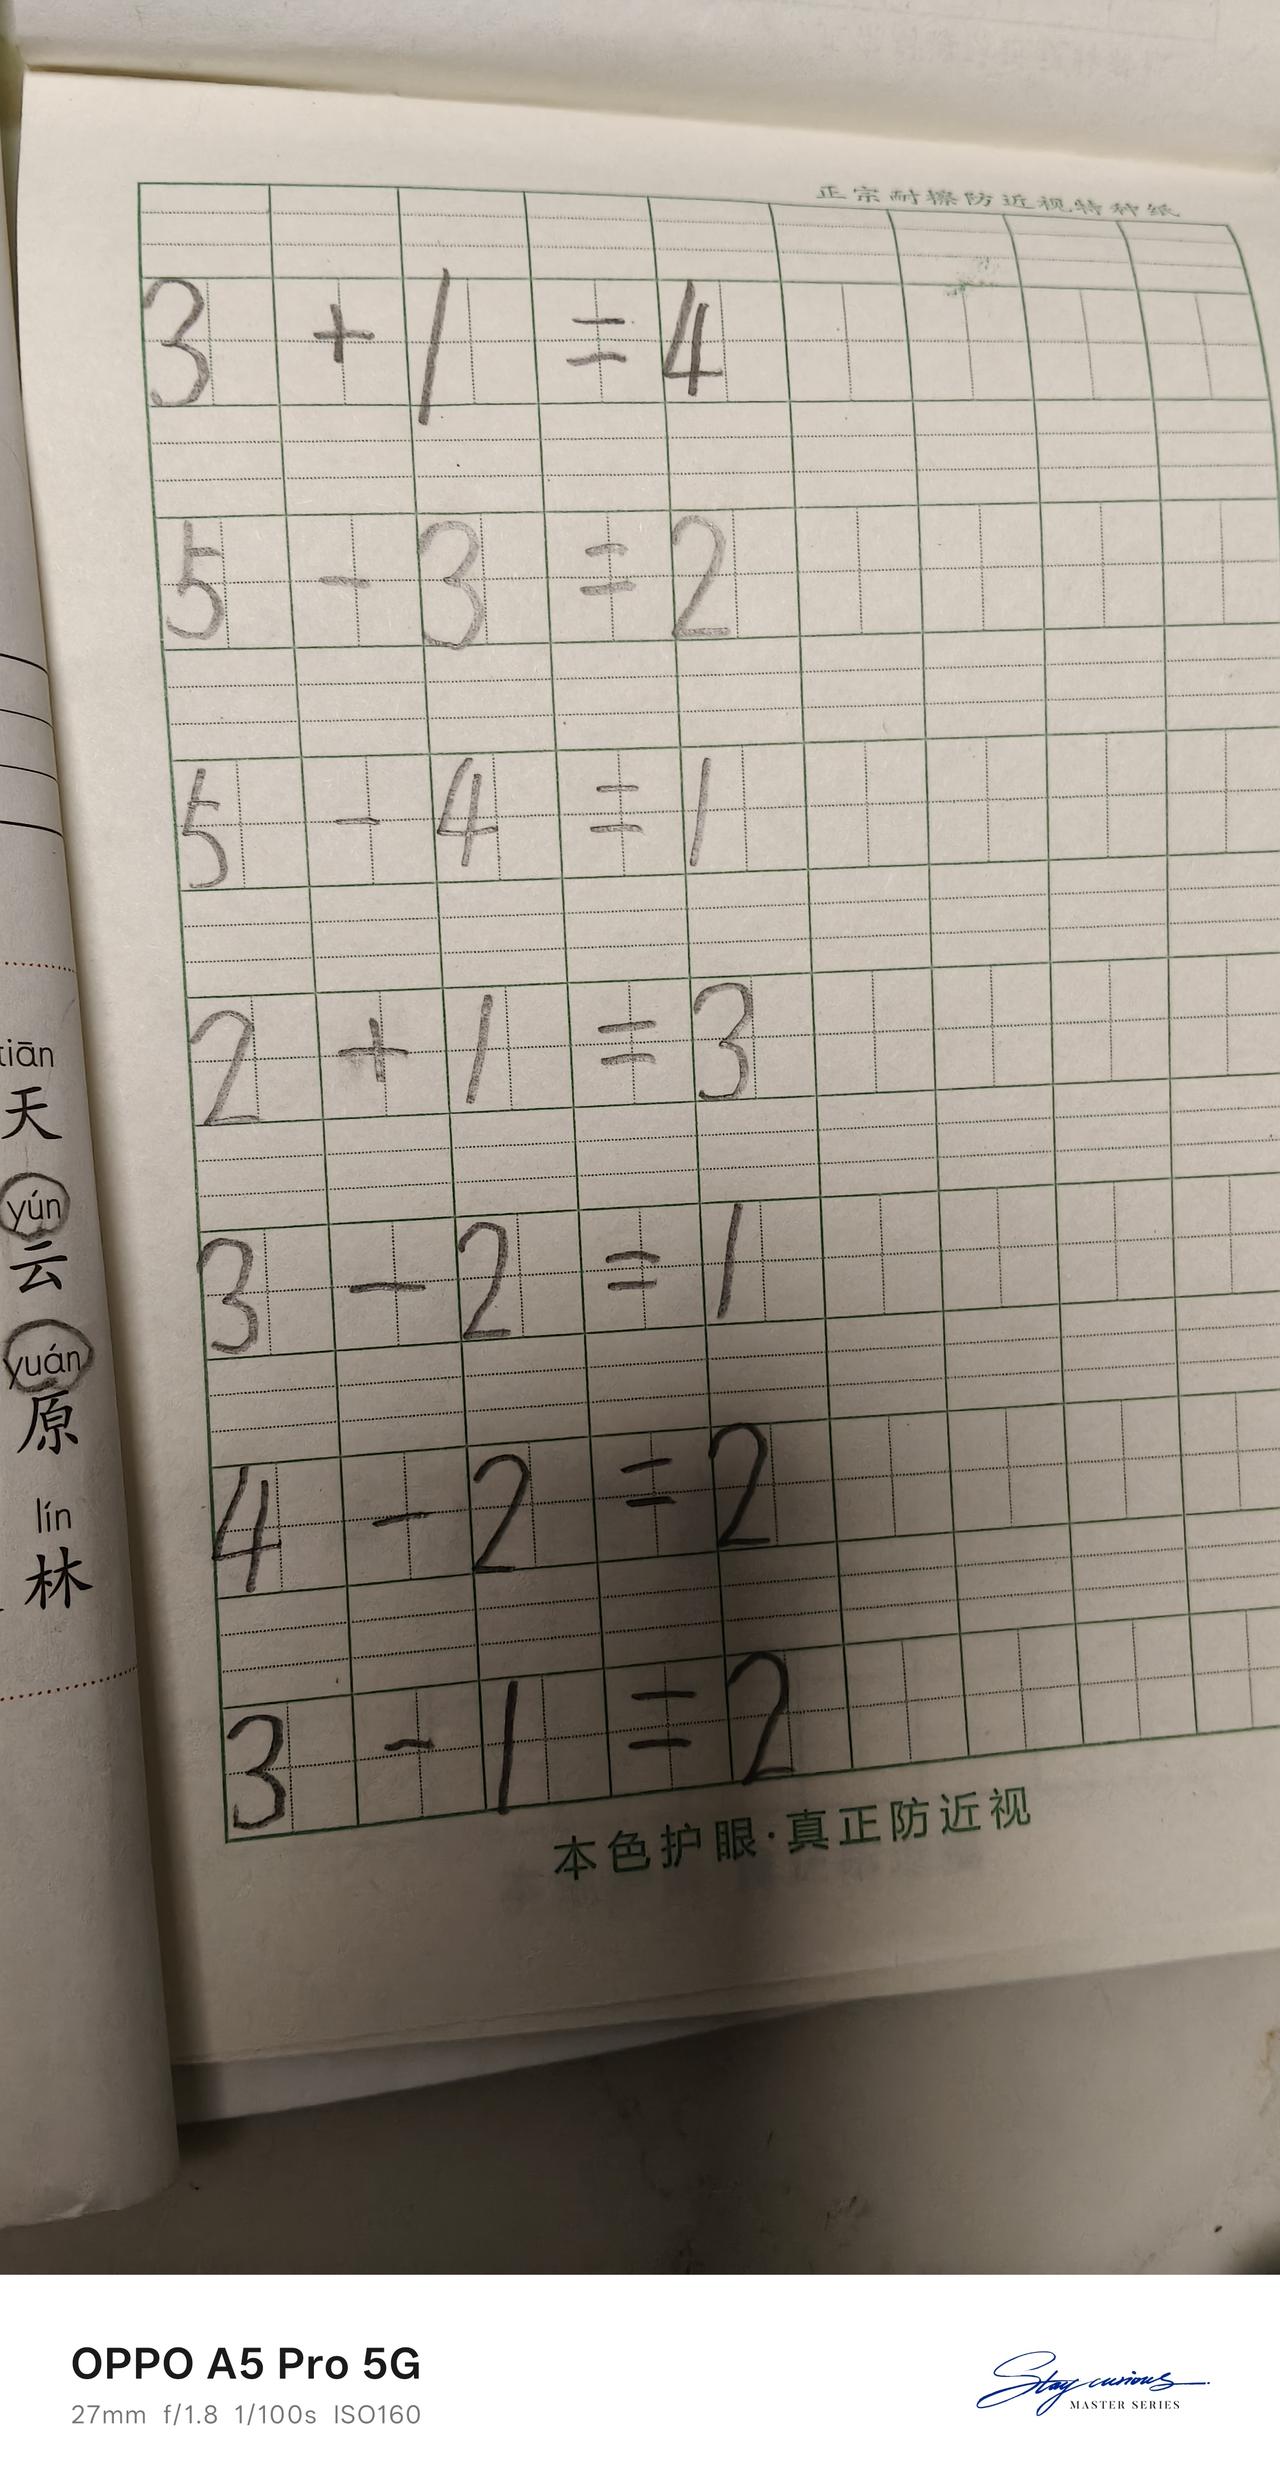 正宗耐擦防近视特种纸
3 + 1 = 4
5 - 3 = 2
5 - 4 = 1
2 + 1 = 3
3 - 2 = 1
4 - 2 = 2
3 - 1 = 2
本色护眼·真正防近视
tiān
天
yún
云
yuán
原
lín
林
OPPO A5 Pro 5G
27mm f/1.8 1/100s ISO160
Stay curious
MASTER SERIES